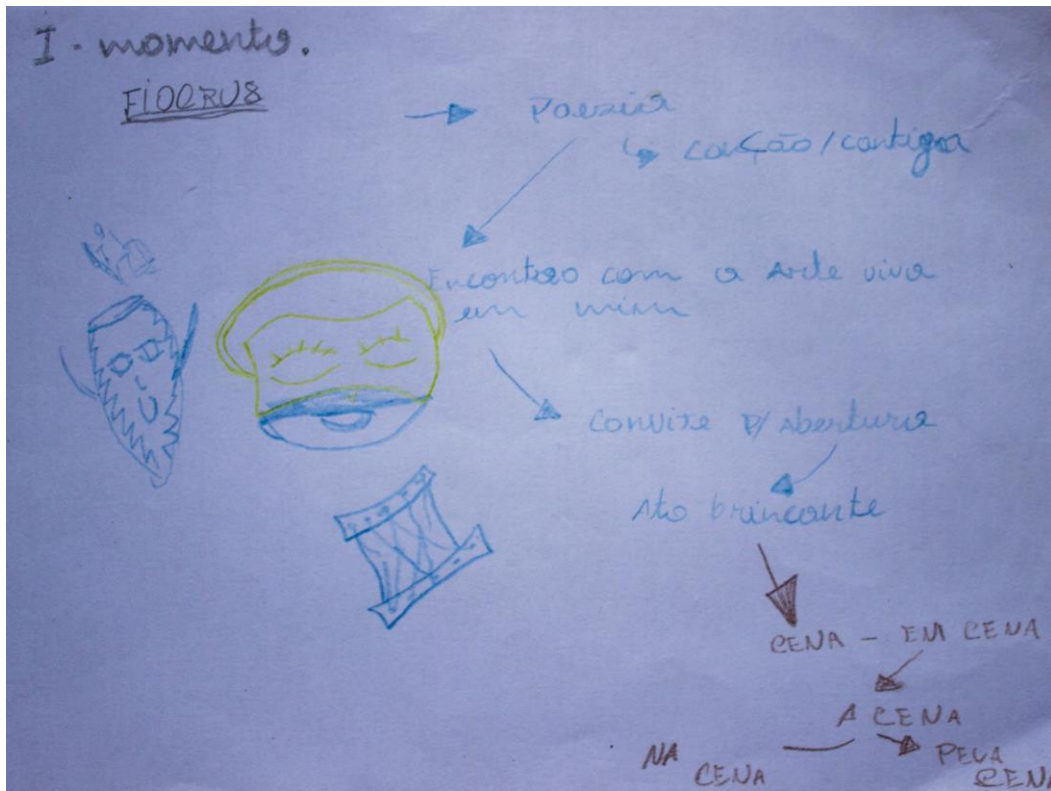 I. momento.
FIOERUS
Poezia
canção/cantiga
Encontro com a Arte viva
em mim
Convite p/ Abertura
Ato brincante
CENA - EM CENA
A CENA
NA CENA
PELA CENA